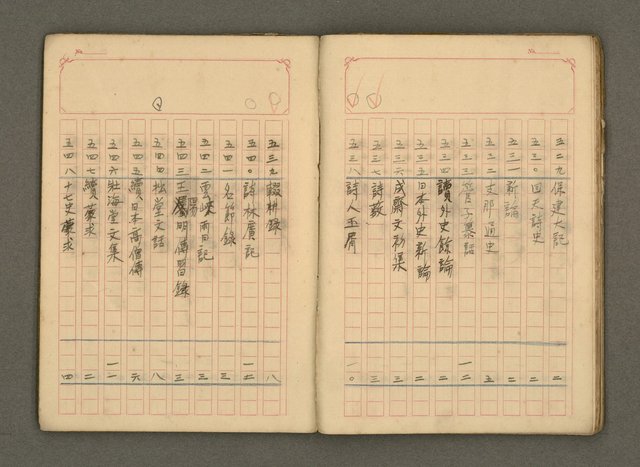 No.
五二九 保建大記 二
五三〇 回天詩史 二
五三一 新論 二
五三二 支那通史 五
五三三 管子纂詁 一二
五三四 讀外史餘論 二
五三五 日本外史新論 二
五三六 成齋文初集 三
五三七 詩敵 三
五三八 詩人玉屑 一〇
No.
五三九 輟耕錄 八
五四〇 詩林廣記 一
五四一 名節錄 三
五四二 雲峽雨日記 三
五四三 王陽明傳習錄 三
五四四 拙堂文話 八
五四五 續日本高僧傳 六
五四六 壯海堂文集 一一
五四七 續蒙求 二
五四八 十七史蒙求 四